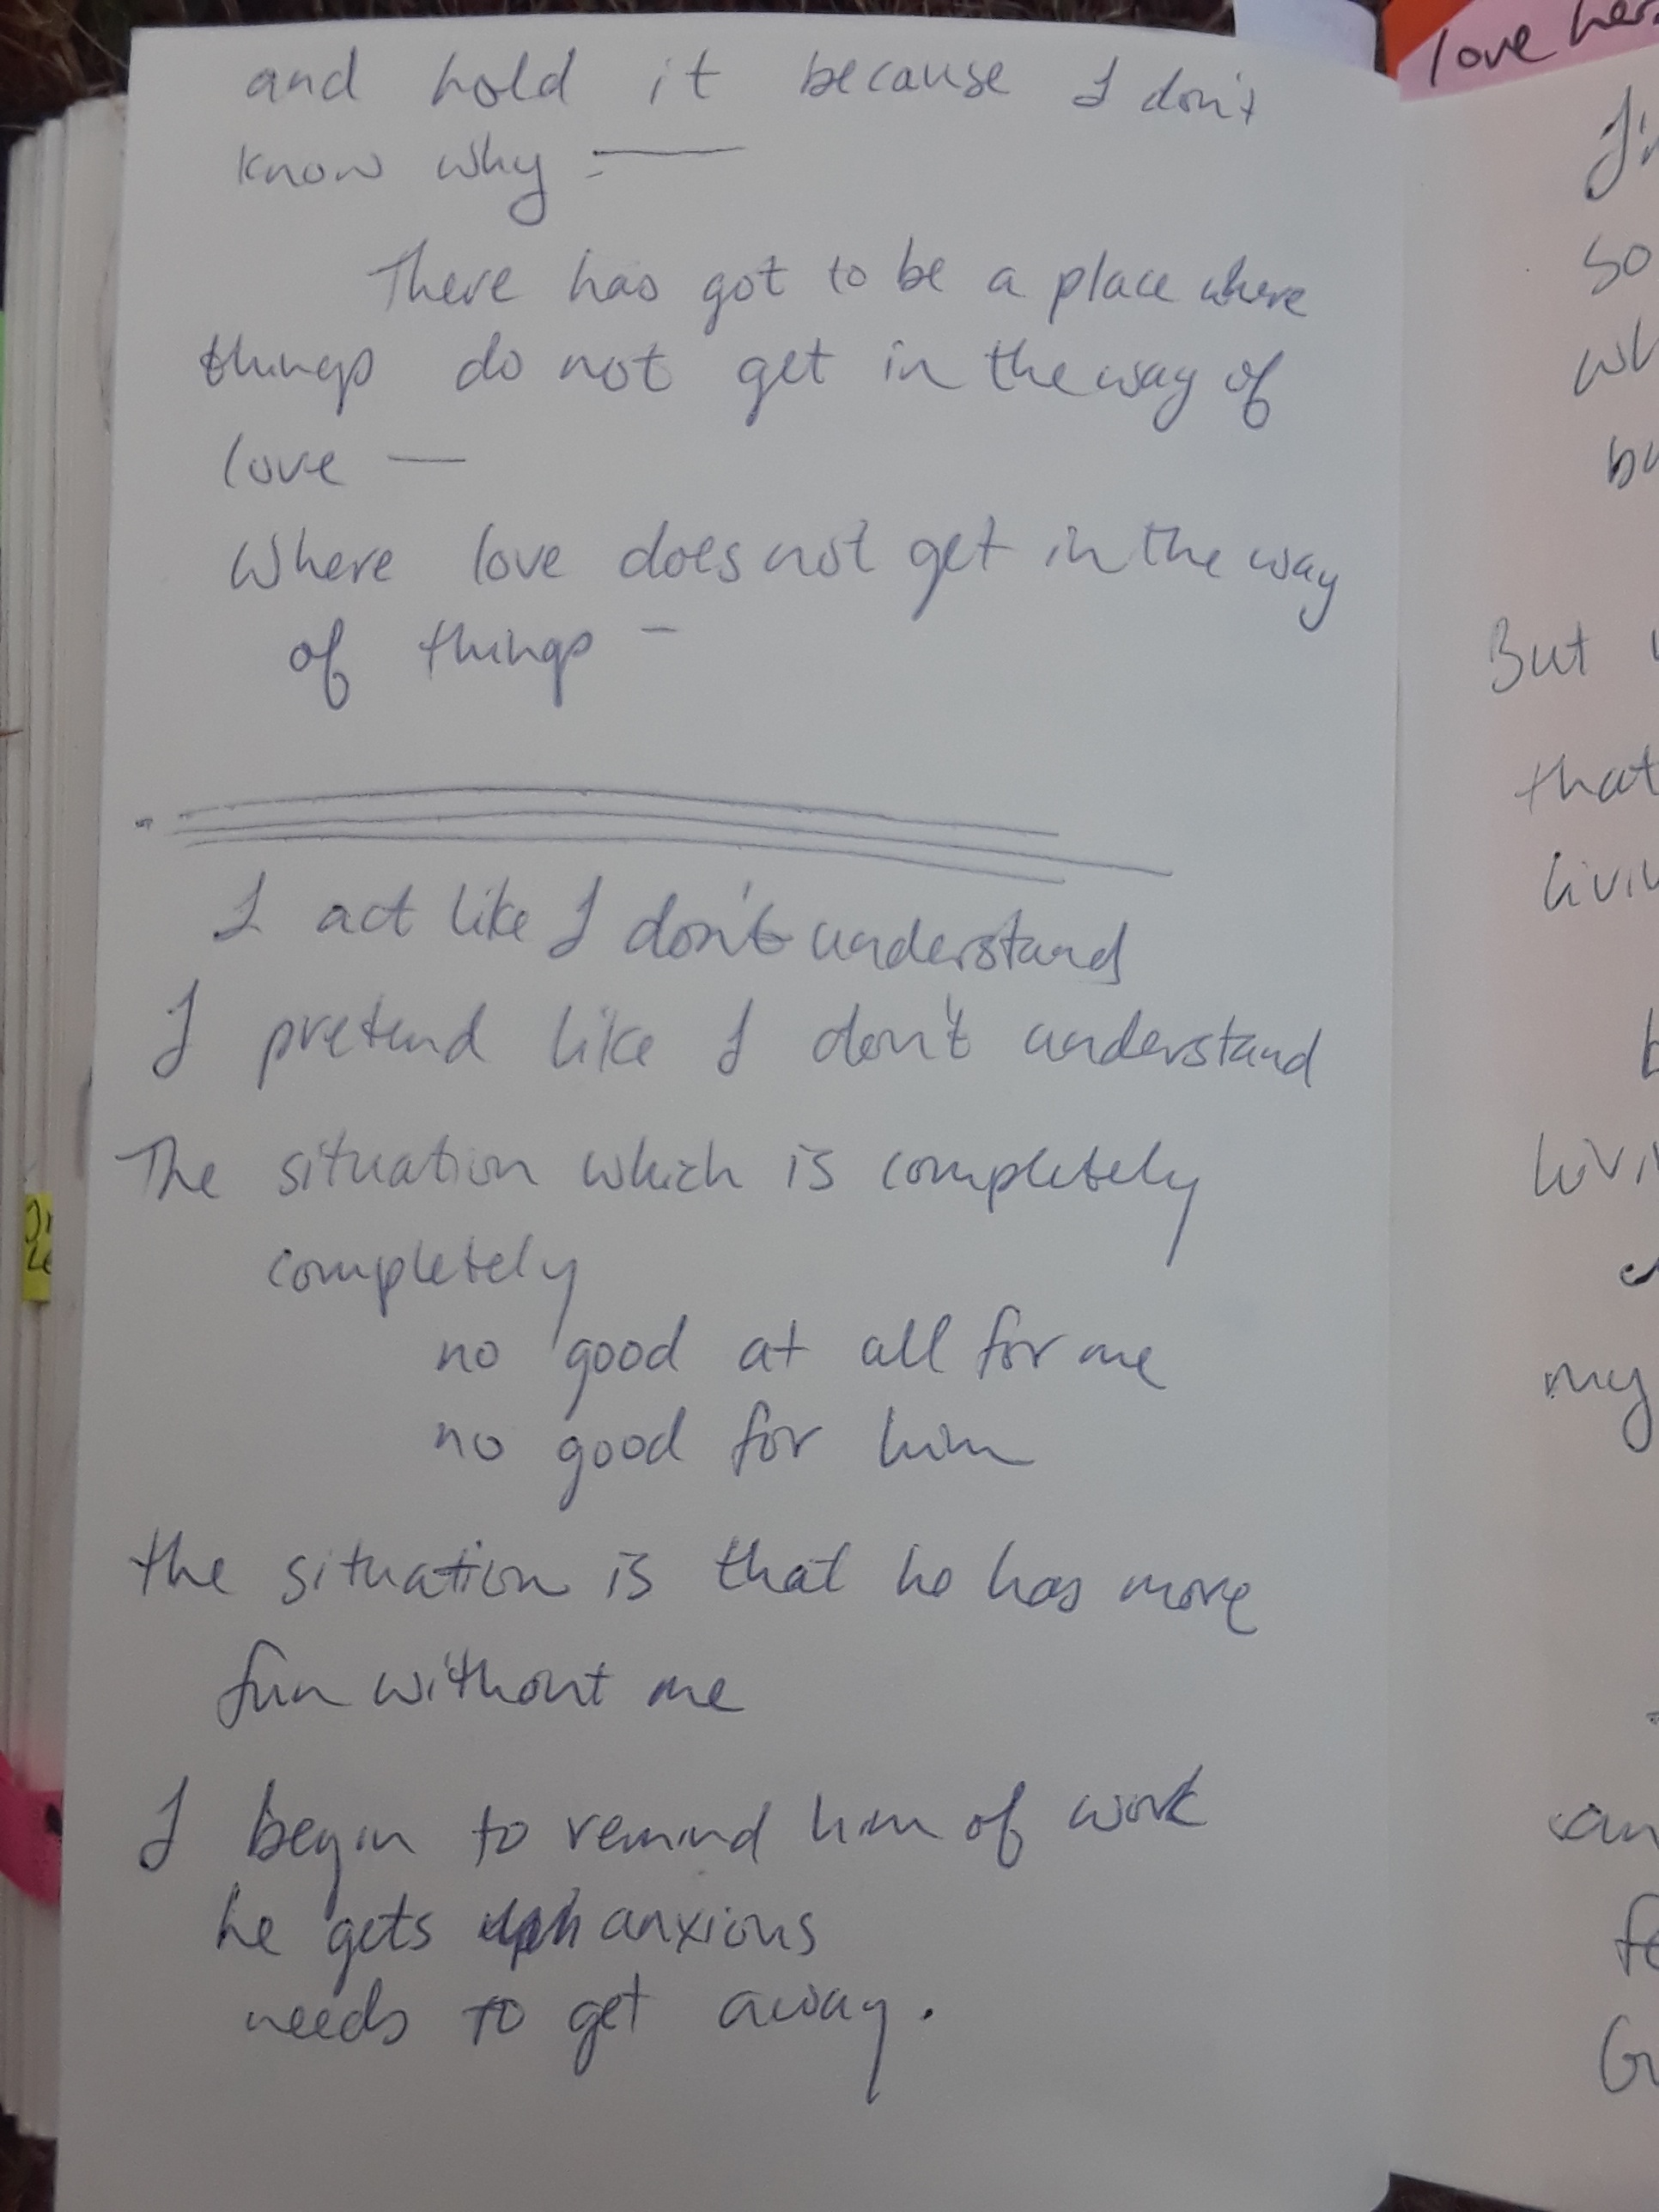 and hold it because I don't
know why —
There has got to be a place where
things do not get in the way of
love —
Where love does not get in the way
of things –
I act like I don't understand
I pretend like I don't understand
The situation which is completely
completely
no good at all for me
no good for him
the situation is that he has more
fun without me
I begin to remind him of work
he gets anxious
needs to get away.
love
so
But
that
my